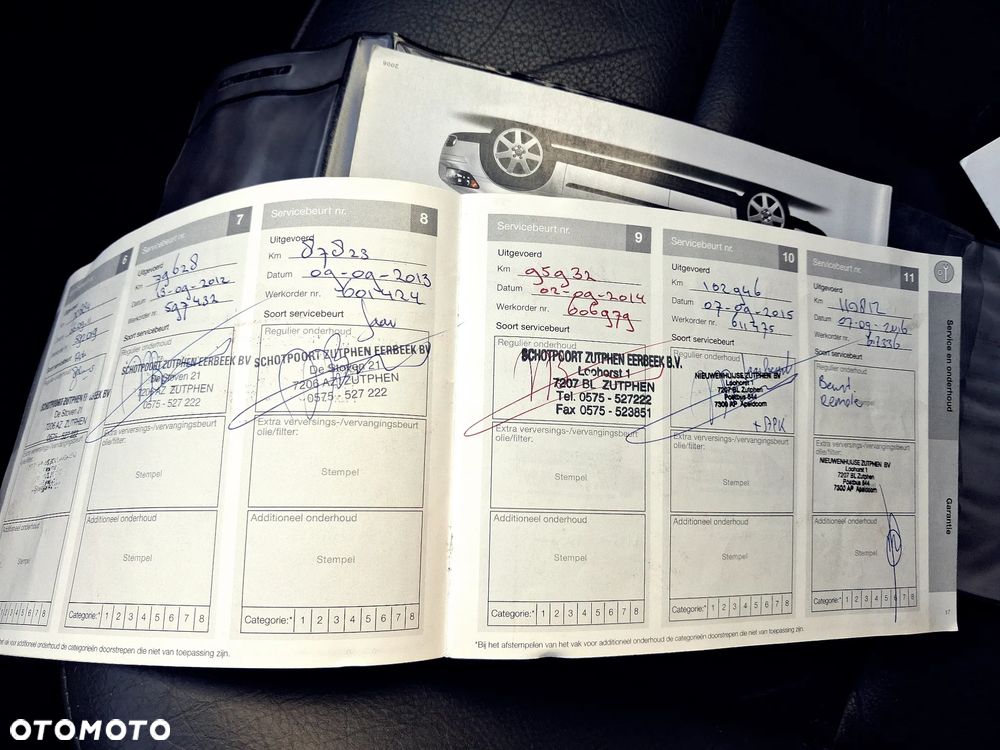 2006
6
Uitgevoerd
De Stoven 21
7206 AZ ZUTPHEN
Stempel
Additioneel onderhoud
Stempel
1 2 3 4 5 6 7 8
Servicebeurt nr. 7
Uitgevoerd
Km 79628
Datum 13-09-2012
Werkorder nr. 597432
Soort servicebeurt
Regulier onderhoud
SCHOTPOORT ZUTPHEN EERBEEK BV
De Stoven 21
7206 AZ ZUTPHEN
0575 - 527 222
Extra verversings-/vervangingsbeurt
olie/filter:
Stempel
Additioneel onderhoud
Stempel
Categorie:* 1 2 3 4 5 6 7 8
Servicebeurt nr. 8
Uitgevoerd
Km 87823
Datum 09-09-2013
Werkorder nr. 601424
Soort servicebeurt
Regulier onderhoud
SCHOTPOORT ZUTPHEN EERBEEK BV
De Stoven 21
7206 AZ ZUTPHEN
0575 - 527 222
Extra verversings-/vervangingsbeurt
olie/filter:
Stempel
Additioneel onderhoud
Stempel
Categorie:* 1 2 3 4 5 6 7 8
het vak voor additioneel onderhoud de categorieën doorstrepen die niet van toepassing zijn.
Servicebeurt nr. 9
Uitgevoerd
Km 95932
Datum 02-09-2014
Werkorder nr. 606979
Soort servicebeurt
Regulier onderhoud
SCHOTPOORT ZUTPHEN EERBEEK B.V.
Loohorst 1
7207 BL ZUTPHEN
Tel. 0575 - 527222
Fax 0575 - 523851
Extra verversings-/vervangingsbeurt
olie/filter:
Stempel
Additioneel onderhoud
Stempel
Categorie:* 1 2 3 4 5 6 7 8
Servicebeurt nr. 10
Uitgevoerd
Km 102946
Datum 07-09-2015
Werkorder nr. 611475
Soort servicebeurt
Regulier onderhoud
NIEUWENHUIJSE ZUTPHEN BV
Loohorst 1
7207 BL Zutphen
Postbus 844
7300 AP Apeldoorn
+ APK
Extra verversings-/vervangingsbeurt
olie/filter:
Stempel
Additioneel onderhoud
Stempel
Categorie:* 1 2 3 4 5 6 7 8
Servicebeurt nr. 11
Uitgevoerd
Km 110812
Datum 07-09-2016
Werkorder nr.
Soort servicebeurt
Regulier onderhoud
Beurt
Extra verversings-/vervangingsbeurt
olie/filter:
NIEUWENHUIJSE ZUTPHEN BV
Loohorst 1
7207 BL Zutphen
Postbus 844
7300 AP Apeldoorn
Additioneel onderhoud
Stempel
Categorie:* 1 2 3 4 5 6 7 8
*Bij het afstempelen van het vak voor additioneel onderhoud de categorieën doorstrepen die niet van toepassing zijn.
Service en onderhoud
Garantie
17
OTOMOTO